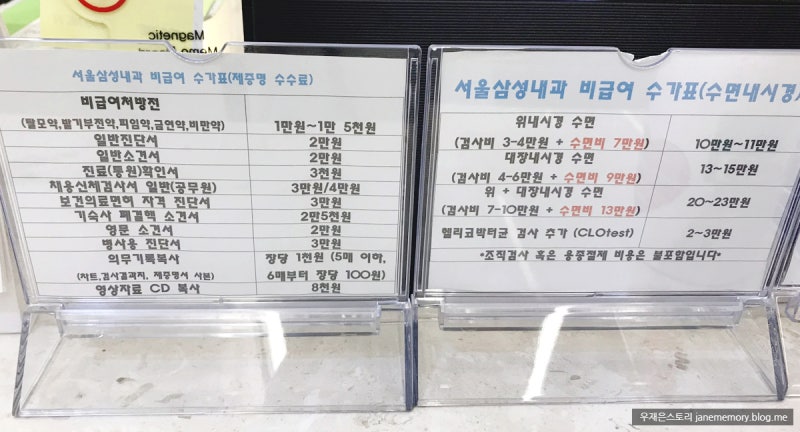 Magnetic
Memo
서울삼성내과 비급여 수가표(제증명 수수료)
비급여처방전
(탈모약,발기부전약,피임약,금연약,비만약) 1만원~1만 5천원
일반진단서 2만원
일반소견서 2만원
진료(통원)확인서 3천원
채용신체검사서 일반(공무원) 3만원/4만원
보건의료면허 자격 진단서 3만원
기숙사 폐결핵 소견서 2만5천원
영문 소견서 2만원
병사용 진단서 3만원
의무기록복사 장당 1천원 (5매 이하,
(차트,검사결과지, 제증명서 사본) 6매부터 장당 100원)
영상자료 CD 복사 8천원
서울삼성내과 비급여 수가표(수면내시경)
위내시경 수면
(검사비 3-4만원 + 수면비 7만원) 10만원~11만원
대장내시경 수면
(검사비 4-6만원 + 수면비 9만원) 13~15만원
위 + 대장내시경 수면
(검사비 7-10만원 + 수면비 13만원) 20~23만원
헬리코박터균 검사 추가 (CLOtest) 2~3만원
*조직검사 혹은 용종절제 비용은 불포함입니다*
우재은스토리 janememory.blog.me